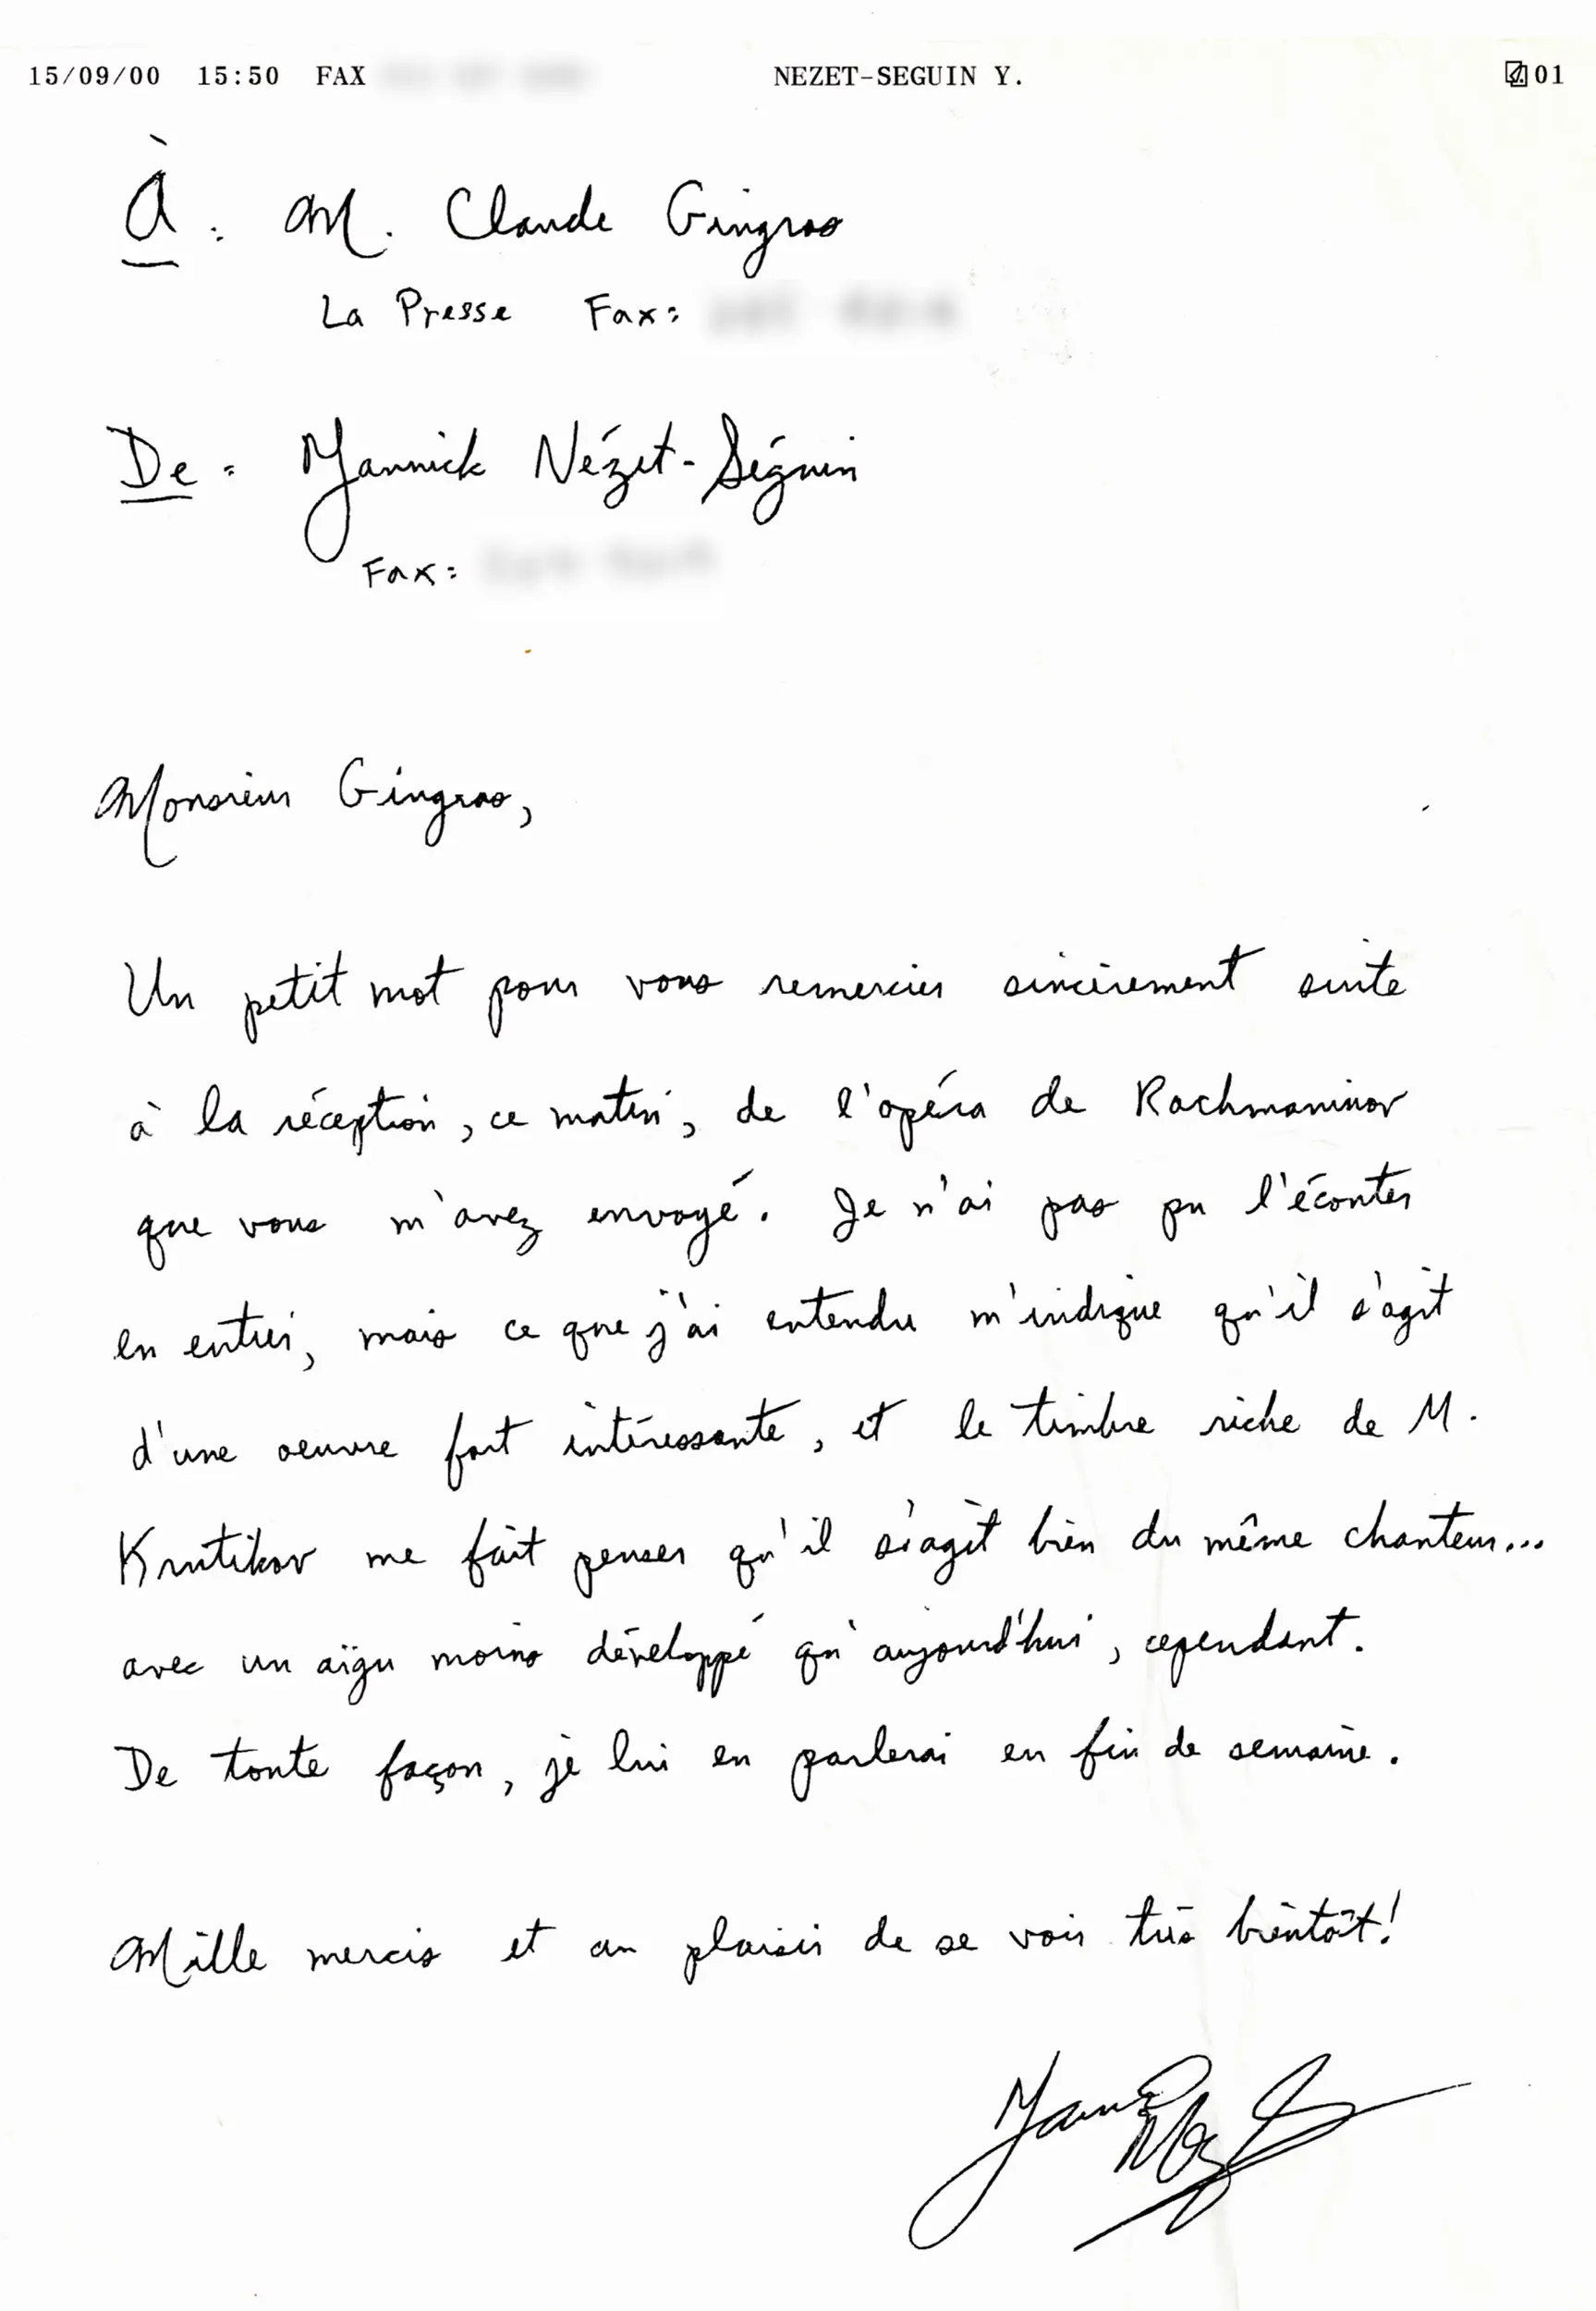 15/09/00 15:50 FAX NEZET-SEGUIN Y. 01
À : M. Claude Gingras
La Presse Fax:
De : Yannick Nézet-Séguin
Fax:
Monsieur Gingras,
Un petit mot pour vous remercier sincèrement suite
à la réception, ce matin, de l'opéra de Rachmaninov
que vous m'avez envoyé. Je n'ai pas pu l'écouter
en entier, mais ce que j'ai entendu m'indique qu'il s'agit
d'une oeuvre fort intéressante, et le timbre riche de M.
Krutikov me fait penser qu'il s'agit bien du même chanteur...
avec un aïgu moins développé qu'aujourd'hui, cependant.
De toute façon, je lui en parlerai en fin de semaine.
Mille mercis et au plaisir de se voir très bientôt!